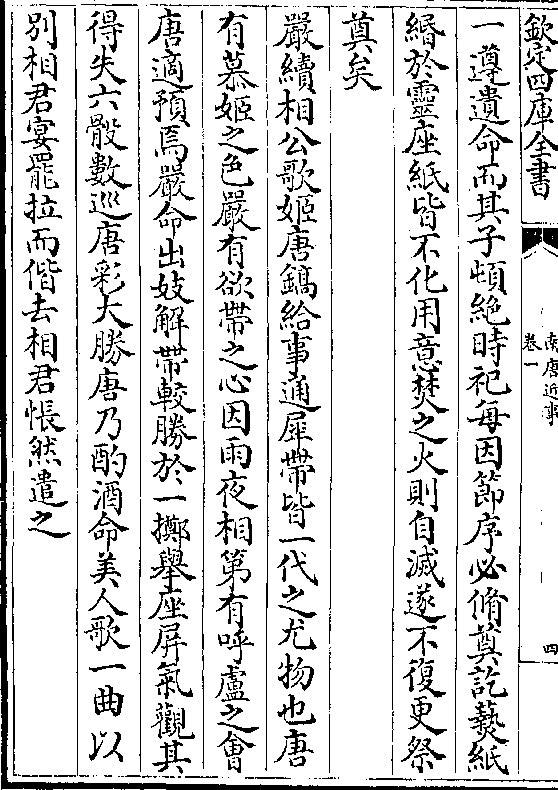 欽定四庫全書
南唐近事
卷一
四
一遵遺命而其子頓絶時祀每因節序必脩奠訖爇紙
緡於靈座紙皆不化用意焚之火則自滅遂不復更祭
奠矣
嚴續相公歌姬唐鎬給事通犀帶皆一代之尤物也唐
有慕姬之色嚴有欲帶之心因雨夜相第有呼盧之會
唐適預焉嚴命出妓解帶較勝於一擲舉座屏氣觀其
得失六骰數巡唐彩大勝唐乃酌酒命美人歌一曲以
别相君宴罷拉而偕去相君悵然遣之